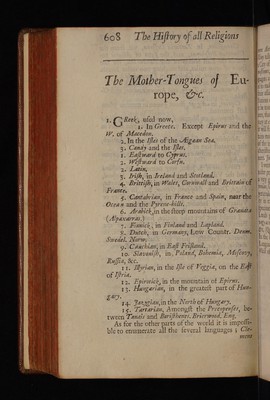 608 The History of all Religions
The Mother-Tongues of Eu-
rope, &c.
1. GReek, used now,
1. In Greece. Except Epirus and the
W. of Macedon.
2. In the Isles of the Ægean Sea.
3. Candy and the Isles.
1. Eastward to Cyprus.
2. Westward to Corfu.
2. Latin.
3. Irish, in Ireland and Scotland.
4. Brittish, in Wales, Cornwall and Britain of
France.
5. Cantabrian, in France and Spain, near the
Ocean and the Pyrene-hills.
6. Arabick, in the steep mountains of Granata
(Alpuxarras.)
7. Finnick, in Finland and Lapland.
8. Dutch, in Germany, Low Countr. Denm.
Swedel. Norw.
9. Cauchian, in East Frisland.
10. Slavonish, in Poland, Bohemia, Moscovy,
Russia, &c.
11. Illyrian, in the Isle of Veggia, on the East
of Istria.
12. Epirotick, in the mountain of Epirus.
13. Hungarian, in the greatest part of Hun-
gary.
14. Jazygian, in the North of Hungary.
15. Tartarian, Amongst the Precopenses, be-
tween Tanais and Boristhenes. Brierwood. Enq.
As for the other parts of the world it is impossi-
ble to enumerate all the several languages; Cle-
ment